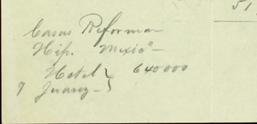 51
Casas Reforma
Hip. "Mexico"
Hotel } 640000
7 Juarez